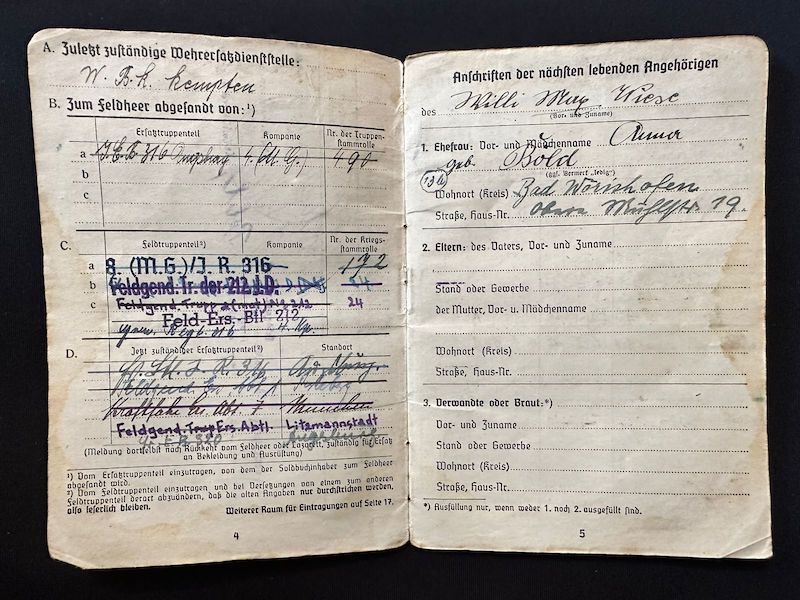 A. Zuletzt zuständige Wehrersatzdienststelle:
W. B. K. Kempten
B. Zum Feldheer abgesandt von:¹)
Ersatztruppenteil Kompanie Nr. der Truppenstammrolle
a 4. (M. G.) 490
b
c
C. Feldtruppenteil²) Kompanie Nr. der Kriegsstammrolle
a 8. (M.G.)/J. R. 316 172
b Feldgend. Tr. der 212. J.D.
c Feldgend. Trupp 212 24
Feld-Ers. Btl. 212
D. Jetzt zuständiger Ersatztruppenteil²) Standort
München
Feldgend. Trup Ers. Abtl. Litzmannstadt
(Meldung dortselbst nach Rückkehr vom Feldheer oder Lazarett, zuständig für Ersatz
an Bekleidung und Ausrüstung)
¹) Vom Ersatztruppenteil einzutragen, von dem der Soldbuchinhaber zum Feldheer
abgesandt wird.
²) Vom Feldtruppenteil einzutragen und bei Versetzungen von einem zum anderen
Feldtruppenteil derart abzuändern, daß die alten Angaben nur durchstrichen werden,
also leserlich bleiben.
Weiterer Raum für Eintragungen auf Seite 17.
4
Anschriften der nächsten lebenden Angehörigen
des Willi Max Wiese
(Vor- und Zuname)
1. Ehefrau: Vor- und Mädchenname
geb. Bold
(ggf. Vermerk „ledig")
Wohnort (Kreis) Bad Wörishofen
Straße, Haus-Nr. Obere Mühlstr. 19.
2. Eltern: des Vaters, Vor- und Zuname
Stand oder Gewerbe
der Mutter, Vor- u. Mädchenname
Wohnort (Kreis)
Straße, Haus-Nr.
3. Verwandte oder Braut:*)
Vor- und Zuname
Stand oder Gewerbe
Wohnort (Kreis)
Straße, Haus-Nr.
*) Ausfüllung nur, wenn weder 1. noch 2. ausgefüllt sind.
5